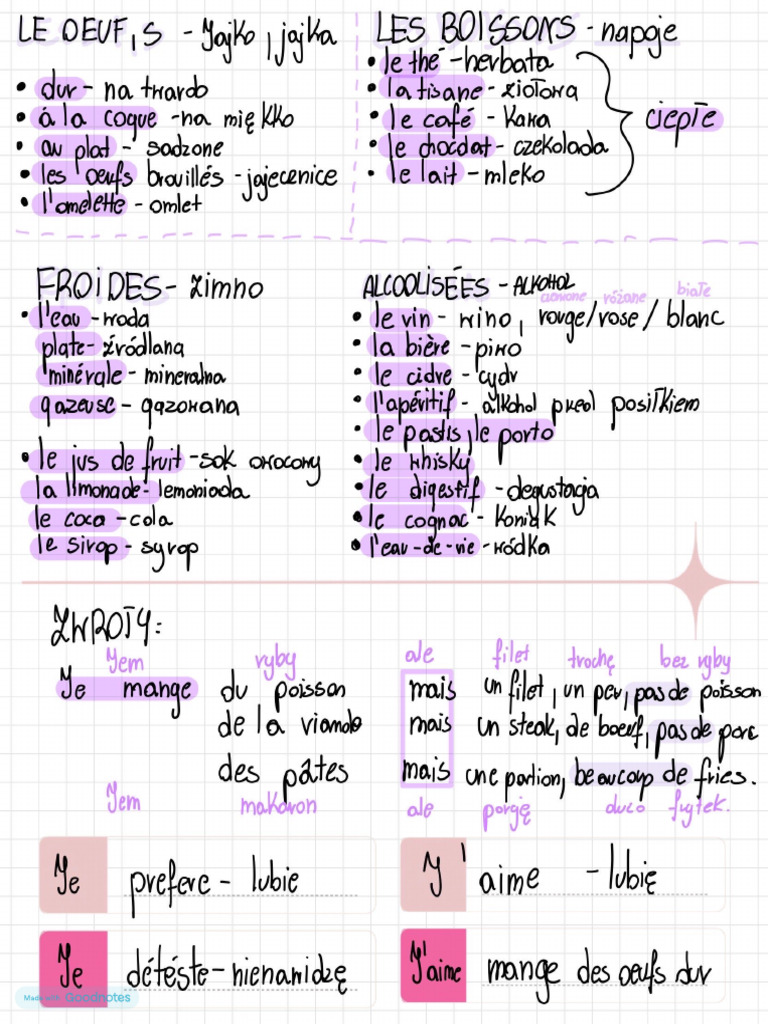 LE OEUF,S - Jajko, jajka
• dur - na twardo
• á la coque - na mię kko
• au plat - sadzone
• les oeufs brouillés - jajecenice
• l'omelette - omlet
LES BOISSONS - napoje
• le thé - herbata
• la tisane - ziołowa
• le café - kawa
• le chocdat - czekolada
• le lait - mleko
ciepłe
FROIDES - zimno
• l'eau - woda
plate - źródlana
minérale - mineralna
gazeuse - gazowana
• le jus de fruit - sok owocowy
la limonade - lemoniada
le coca - cola
le sirop - syrop
ALCOOLISÉES - ALKOHOL
czerwone różane białe
• le vin - wino, rouge/rose/blanc
• la bière - piwo
• le cidre - cydr
• l'apéritif - alkohol przed posiłkiem
• le pastis, le porto
• le whisky
• le digestif - degustacja
• le cognac - koniak
• l'eau-de-vie - wódka
ZWROTY:
Jem ryby ale filet trochę bez ryby
Je mange du poisson mais un filet, un peu, pas de poisson
de la viande mais un steak, de boeuf, pas de porc
des pâtes mais une portion, beaucoup de fries.
Jem makaron ale porcję dużo frytek.
Je prefere - lubie
J'aime - lubię
Je détéste - nienawidzę
J'aime mange des oeufs dur
Made with Goodnotes